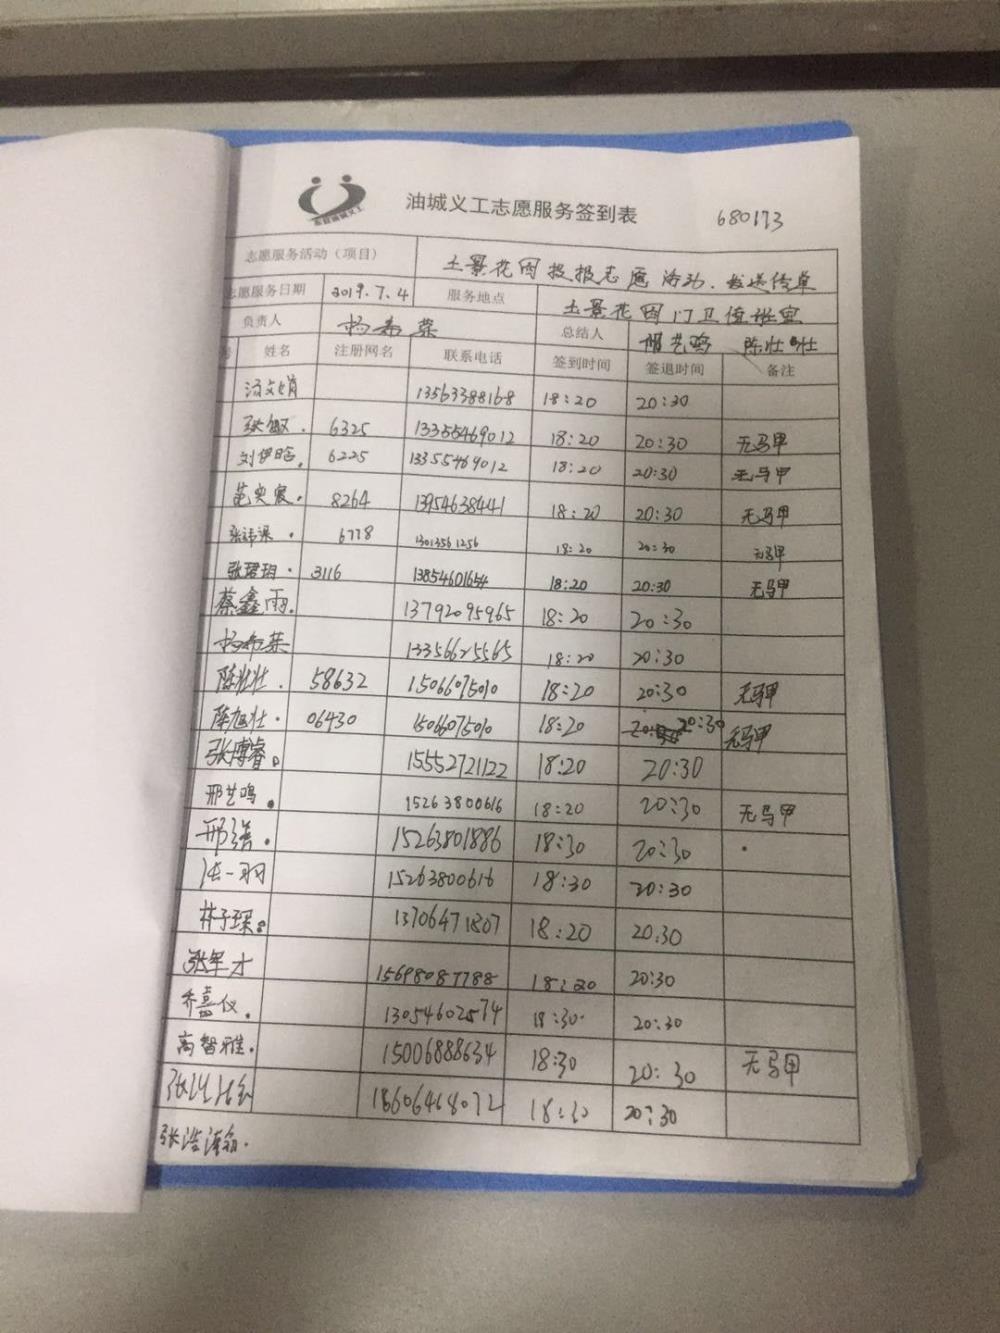 东营油城义工
油城义工志愿服务签到表 680173
志愿服务活动（项目） 土景花园投报志愿活动.发送传单
志愿服务日期 2019.7.4 服务地点 土景花园门卫值班室
负责人 杨希荣 总结人 邢艺鸣 陈壮壮
号 姓名 注册网名 联系电话 签到时间 签退时间 备注
13563388168 18:20 20:30
张敏. 6325 13355469012 18:20 20:30 无马甲
刘伊晗. 6225 13355469012 18:20 20:30 无马甲
范奕宸 8264 13954638441 18:20 20:30 无马甲
6778 13013561256 18:20 20:30 无马甲
张珺玥. 3116 13854601654 18:20 20:30 无马甲
蔡鑫雨. 13792095965 18:20 20:30
杨希荣 13356625565 18:20 20:30
陈壮壮. 58632 15066075010 18:20 20:30 无马甲
陈旭壮. 06430 15066075010 18:20 20:30 无马甲
张博睿. 15552721122 18:20 20:30
邢艺鸣. 15263800616 18:20 20:30 无马甲
15263801886 18:30 20:30
张一羽 15263800616 18:30 20:30
林子琛. 13706471807 18:20 20:30
张军才 15698087788 18:20 20:30
乔嘉仪. 13054602574 18:30 20:30
高智雅. 15006888634 18:30 20:30 无马甲
18606468072 18:30 20:30
张浩